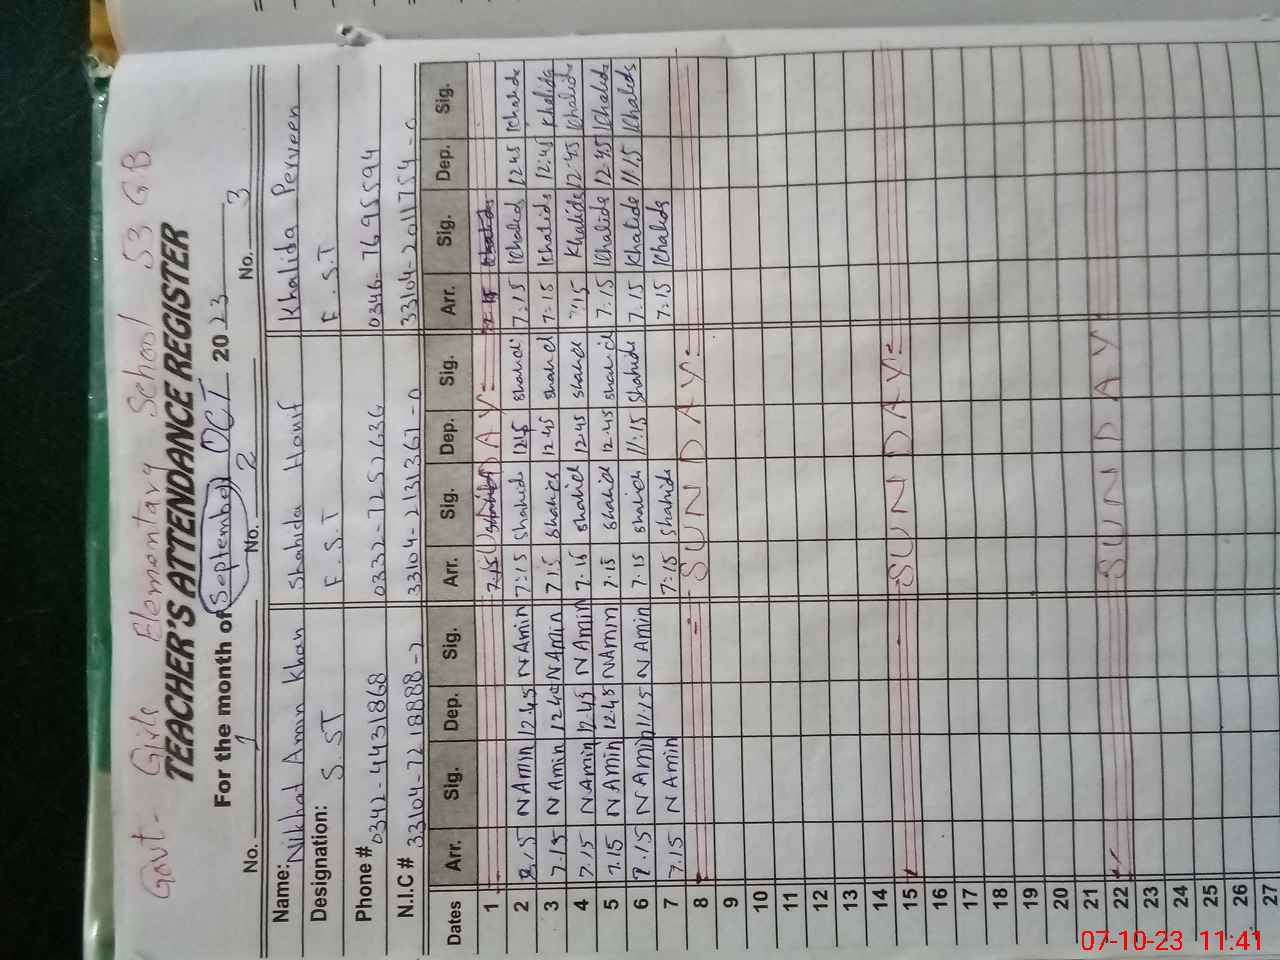 Govt- Girls Elementary School 53 G.B
TEACHER'S ATTENDANCE REGISTER
For the month of September OCT 2023
No. 1 No. 2 No. 3
Name: Nikhat Amin Khan Shahida Hanif Khalida Perveen
Designation: S.ST E.S.T E.S.T
Phone # 0342-4431868 0332-7257636 0346-7695594
N.I.C # 33104-7218888-2 33104-2131361-0 33104-2011754-0
Dates Arr. Sig. Dep. Sig. Arr. Sig. Dep. Sig. Arr. Sig. Dep. Sig.
1 7.15 SUNDAY
2 8.15 NAmin 12.45 NAmin 7:15 Shahida 12.45 Shahid 7:15 Khalid 12.45 Khalida
3 7.15 NAmin 12.45 NAmin 7.15 Shahida 12.45 Shahid 7:15 Khalida 12:45 Khalida
4 7.15 NAmin 12.45 NAmin 7.15 Shahid 12.45 Shahid 7:15 Khalida 12.45 Khalida
5 7.15 NAmin 12.45 NAmin 7.15 Shahid 12.45 Shahid 7:15 Khalida 12.45 Khalida
6 7.15 NAmin 11.15 NAmin 7.15 Shahid 11:15 Shahida 7.15 Khalida 11.15 Khalida
7 7.15 NAmin 7:15 Shahida 7:15 Khalida
8 SUNDAY
9
10
11
12
13
14
15 SUNDAY
16
17
18
19
20
21
22 SUNDAY
23
24
25
26
27
07-10-23 11:41